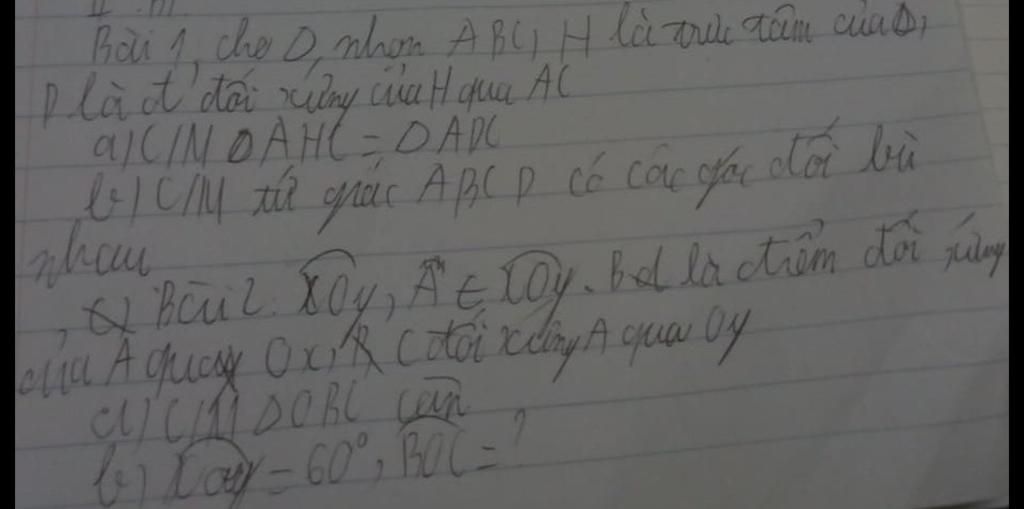 Bài 1, cho Δ, nhọn ABC, H là trực tâm của Δ,
D là đ' đối xứng của H qua AC
a) C/M Δ AHC = Δ ADC
b) C/M tứ giác ABCD có các góc đối bù
nhau
Bài 2. xOy, A ∈ xOy. B là điểm đối xứng
của A qua Ox, C đối xứng A qua Oy
a) C/M Δ OBC cân
b) xOy = 60°, BOC = ?